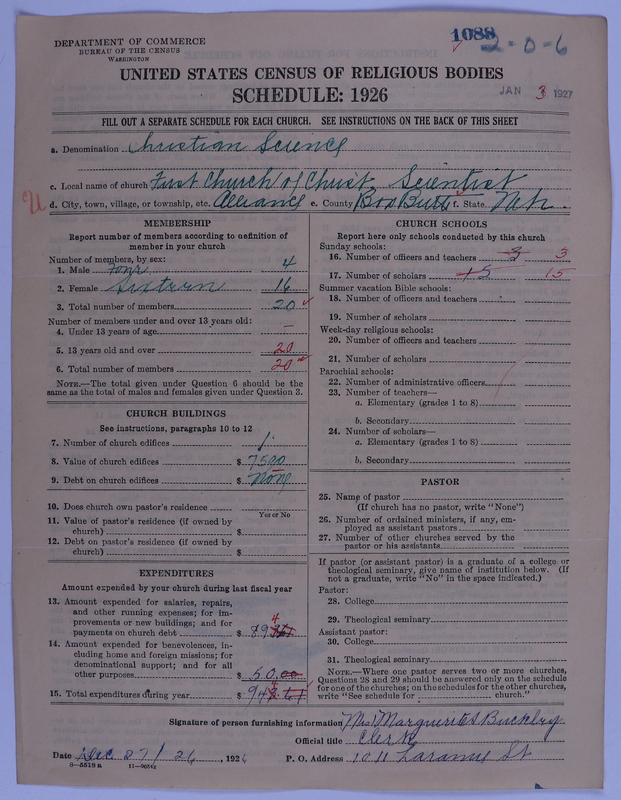 DEPARTMENT OF COMMERCE
BUREAU OF THE CENSUS
WASHINGTON
1088
2-0-6
UNITED STATES CENSUS OF RELIGIOUS BODIES
SCHEDULE: 1926
JAN 3 1927
FILL OUT A SEPARATE SCHEDULE FOR EACH CHURCH. SEE INSTRUCTIONS ON THE BACK OF THIS SHEET
a. Denomination Christian Science
c. Local name of church First Church of Christ Scientist
d. City, town, village, or township, etc. Alliance e. County Box Butte f. State Neb.
MEMBERSHIP
Report number of members according to definition of
member in your church
Number of members, by sex:
1. Male four 4
2. Female Sixteen 16
3. Total number of members 20
Number of members under and over 13 years old:
4. Under 13 years of age —
5. 13 years old and over 20
6. Total number of members 20
NOTE.—The total given under Question 6 should be
same as the total of males and females given under Question 3.
CHURCH BUILDINGS
See instructions, paragraphs 10 to 12
7. Number of church edifices 1
8. Value of church edifices $ 7500
9. Debt on church edifices $ None
10. Does church own pastor's residence
Yes or No
11. Value of pastor's residence (if owned by
church) $
12. Debt on pastor's residence (if owned by
church) $
EXPENDITURES
Amount expended by your church during last fiscal year
13. Amount expended for salaries, repairs,
and other running expenses; for im-
provements or new buildings; and for
payments on church debt $ 893.61 4
14. Amount expended for benevolences, in-
cluding home and foreign missions; for
denominational support; and for all
other purposes $ 50.00
15. Total expenditures during year $ 943.61 4
CHURCH SCHOOLS
Report here only schools conducted by this church
Sunday schools:
16. Number of officers and teachers 3 3
17. Number of scholars 15 15
Summer vacation Bible schools:
18. Number of officers and teachers
19. Number of scholars
Week-day religious schools:
20. Number of officers and teachers
21. Number of scholars
Parochial schools:
22. Number of administrative officers
23. Number of teachers—
a. Elementary (grades 1 to 8)
b. Secondary
24. Number of scholars—
a. Elementary (grades 1 to 8)
b. Secondary
PASTOR
25. Name of pastor
(If church has no pastor, write "None")
26. Number of ordained ministers, if any, em-
ployed as assistant pastors
27. Number of other churches served by the
pastor or his assistants
If pastor (or assistant pastor) is a graduate of a college or
theological seminary, give name of institution below. (If
not a graduate, write "No" in the space indicated.)
Pastor:
28. College
29. Theological seminary
Assistant pastor:
30. College
31. Theological seminary
NOTE.—Where one pastor serves two or more churches,
Questions 28 and 29 should be answered only on the schedule
for one of the churches; on the schedules for the other churches,
write "See schedule for church."
Signature of person furnishing information Mrs Marguerite A Buckley
Official title Clerk
Date Dec 27/26, 1926 P. O. Address 1011 Laramie St
8—5518 a 11—96542